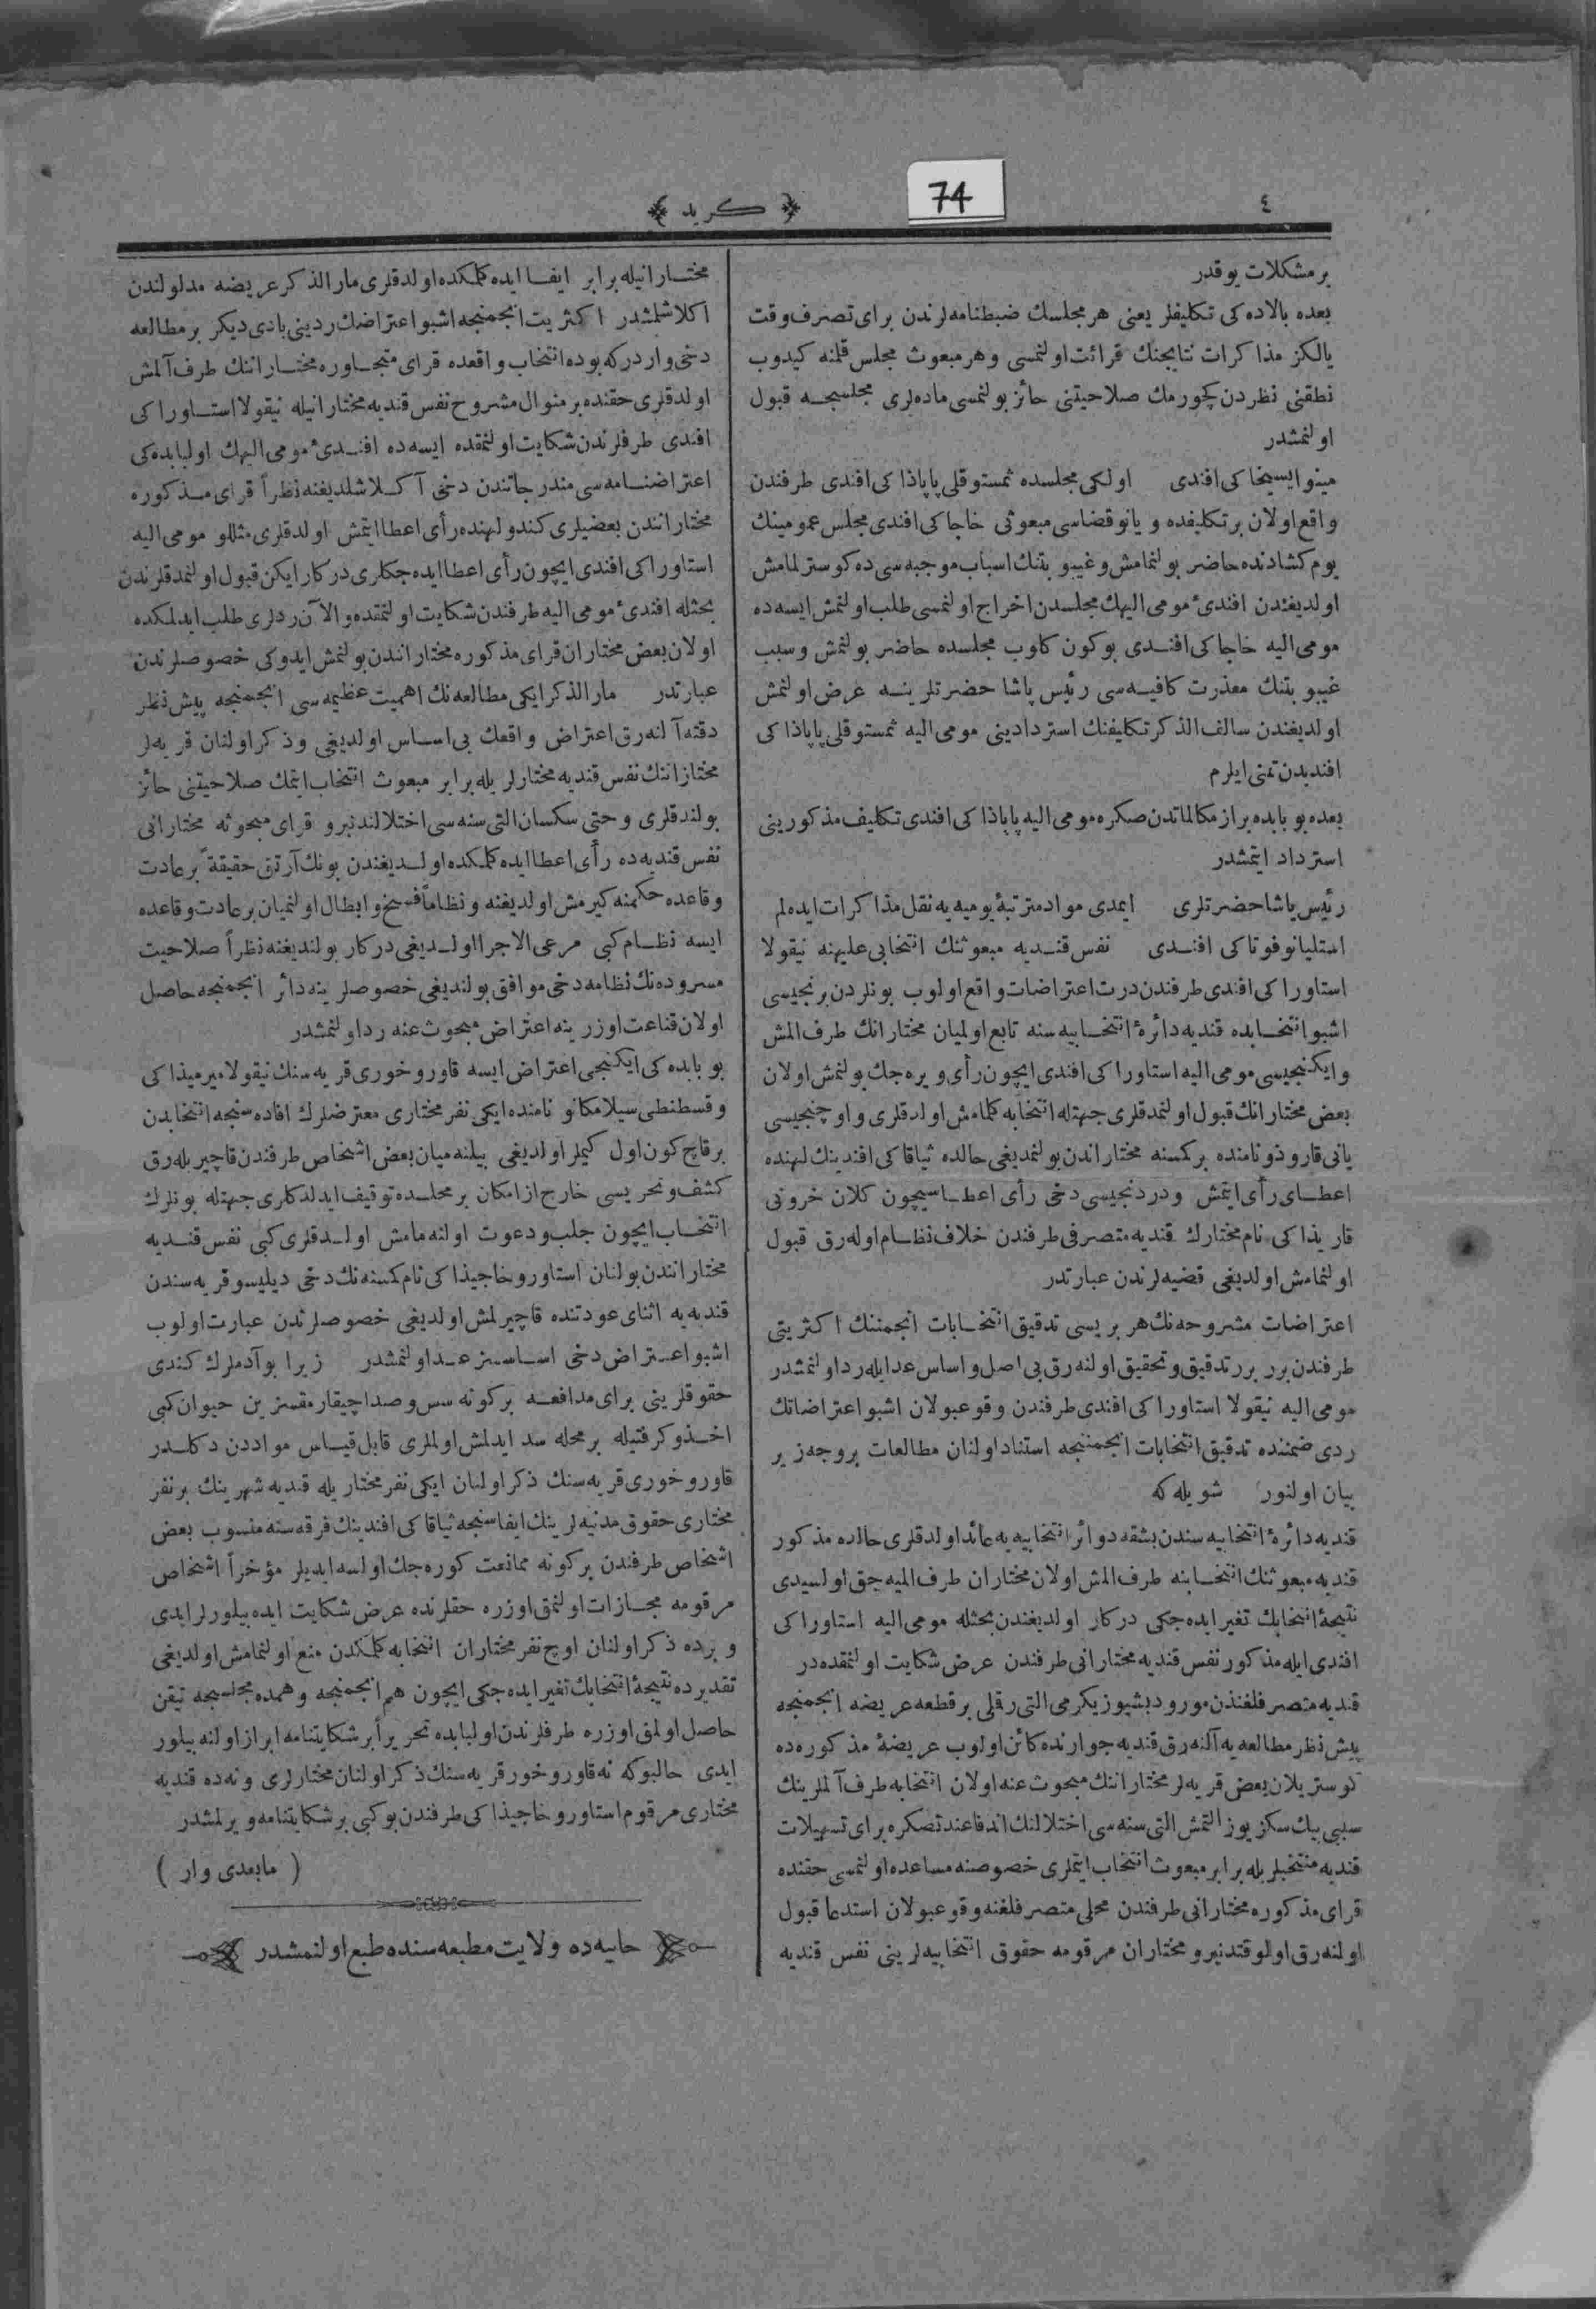 ٤
74
﴿ كريد ﴾
بر مشكلات يوقدر
بعده بالاده‌كى تكليفلر يعنى هر مجلسك ضبطنامه‌لرندن براى تصرف وقت
يالكز مذاكرات نتايجنك قرائت اولنمسى وهر مبعوث مجلس قلمنه كيدوب
نطقنى نظردن كچورمك صلاحيتنى حائز بولنمسى ماده‌لرى مجلسجه قبول
اولنمشدر
مينوايسيخاكى افندى اولكى مجلسده ثمستوقلى پاپاذاكى افندى طرفندن
واقع اولان بر تكليفده ويانو قضاسى مبعوثى خاجاكى افندى مجلس عمومينك
يوم كشادنده حاضر بولنمامش وغيبوبتنك اسباب موجبه‌سى ده كوسترلمامش
اولديغندن افندئ مومى اليهك مجلسدن اخراج اولنمسى طلب اولنمش ايسه‌ده
مومى اليه خاجاكى افندى بوكون كلوب مجلسده حاضر بولنمش وسبب
غيبوبتنك معذرت كافيه‌سى رئيس پاشا حضرتلرينه عرض اولنمش
اولديغندن سالف الذكر تكليفنك استردادينى مومى اليه ثمستوقلى پاپاذاكى
افنديدن تمنى ايلرم
بعده بو بابده براز مكالماتدن صكره مومى اليه پاپاذاكى افندى تكليف مذكورينى
استرداد ايتمشدر
رئيس پاشا حضرتلرى ايمدى مواد مترتبهٔ يوميه‌يه نقل مذاكرات ايده‌لم
استليانو فوتاكى افندى نفس قنديه مبعوثنك انتخابى عليهنه نيقولا
استاوراكى افندى طرفندن درت اعتراضات واقع اولوب بونلردن برنجيسى
اشبو انتخابده قنديه دائرهٔ انتخابيه‌سنه تابع اولميان مختارانك طرف المش
وايكنجيسى مومى اليه استاوراكى افندى ايچون رأى ويره‌جك بولنمش اولان
بعض مختارانك قبول اولنمدقلرى جهتله انتخابه كلمامش اولدقلرى واوچنجيسى
يانى قاروذو نامنده بركسنه مختاراندن بولنمديغى حالده ثياقاكى افندينك لهنده
اعطاى رأى ايتمش ودردنجيسى دخى رأى اعطاسيچون كلان خرونى
قاريذاكى نام مختارك قنديه متصرفى طرفندن خلاف نظام اوله‌رق قبول
اولنمامش اولديغى قضيه‌لرندن عبارتدر
اعتراضات مشروحه‌نك هر بريسى تدقيق انتخابات انجمننك اكثريتى
طرفندن برر برر تدقيق وتحقيق اولنه‌رق بى اصل واساس عد ايله رد اولنمشدر
مومى اليه نيقولا استاوراكى افندى طرفندن وقوعبولان اشبو اعتراضاتك
ردى ضمننده تدقيق انتخابات انجمننجه استناد اولنان مطالعات بروجه زير
بيان اولنور شويله‌كه
قنديه دائرهٔ انتخابيه‌سندن بشقه دوائر انتخابيه‌يه عائد اولدقلرى حالده مذكور
قنديه مبعوثنك انتخابنه طرف المش اولان مختاران طرف الميه‌جق اولسيدى
نتيجهٔ انتخابك تغير ايده‌جكى دركار اولديغندن بحثله مومى اليه استاوراكى
افندى ايله مذكور نفس قنديه مختارانى طرفندن عرض شكايت اولنمقده‌در
قنديه متصرفلغندن مورود بشيوز يكرمى التى رقملى بر قطعه عريضه انجمننجه
پيش نظر مطالعه‌يه آلنه‌رق قنديه جوارنده كائن اولوب عريضهٔ مذكوره‌ده
كوستريلان بعض قريه‌لر مختارانك مبحوث عنه اولان انتخابه طرف آلملرينك
سببى بيك سكز يوز التمش التى سنه‌سى اختلالنك اندفاعندنصكره براى تسهيلات
قنديه منتخبلريله برابر مبعوث انتخاب ايتملرى خصوصنه مساعده اولنمسى حقنده
قراى مذكوره مختارانى طرفندن محلى متصرفلغنه وقوعبولان استدعا قبول
اولنه‌رق اولوقتدنبرو مختاران مرقومه حقوق انتخابيه‌لرينى نفس قنديه
مختارانيله برابر ايفا ايده‌كلمكده اولدقلرى مار الذكر عريضه مدلولندن
اكلاشلمشدر اكثريت انجمننجه اشبو اعتراضك ردينى بادى ديكر بر مطالعه
دخى واردركه بوده انتخاب واقعده قراى متجاوره مختارانك طرف آلمش
اولدقلرى حقنده بر منوال مشروح نفس قنديه مختارانيله نيقولا استاوراكى
افندى طرفلرندن شكايت اولنمقده ايسه‌ده افندئ مومى اليهك اولبابده‌كى
اعتراضنامه‌سى مندرجاتندن دخى آكلاشلديغنه نظراً قراى مذكوره
مختارانندن بعضيلرى كندو لهنده رأى اعطا ايتمش اولدقلرى مثللو مومى اليه
استاوراكى افندى ايچون رأى اعطا ايده‌جكلرى دركار ايكن قبول اولنمدقلرندن
بحثله افندئ مومى اليه طرفندن شكايت اولنمقده والآن ردلرى طلب ايدلمكده
اولان بعض مختاران قراى مذكوره مختارانندن بولنمش ايدوكى خصوصلرندن
عبارتدر مار الذكر ايكى مطالعه‌نك اهميت عظيمه‌سى انجمننجه پيش نظر
دقته آلنه‌رق اعتراض واقعك بى اساس اولديغى وذكر اولنان قريه‌لر
مختارانك نفس قنديه مختارلريله برابر مبعوث انتخاب ايتمك صلاحيتنى حائز
بولندقلرى وحتى سكسان التى سنه‌سى اختلالندنبرو قراى مبحوثه مختارانى
نفس قنديه‌ده رأى اعطا ايده‌كلمكده اولديغندن بونك آرتق حقيقةً بر عادت
وقاعده حكمنه كيرمش اولديغنه ونظاماً فسخ وابطال اولنميان بر عادت وقاعده
ايسه نظام كبى مرعى الاجرا اولديغى دركار بولنديغنه نظراً صلاحيت
مسروده‌نك نظامه دخى موافق بولنديغى خصوصلرينه دائر انجمننجه حاصل
اولان قناعت اوزرينه اعتراض مبحوث عنه رد اولنمشدر
بو بابده‌كى ايكنجى اعتراض ايسه قاوروخورى قريه‌سنك نيقولا ميرميذاكى
وقسطنطى سيلامكانو نامنده ايكى نفر مختارى معترضلرك افاده‌سنجه انتخابدن
برقاچ كون اول كيملر اولديغى بيلنه‌ميان بعض اشخاص طرفندن قاچيريله‌رق
كشف وتحريسى خارج از امكان بر محلده توقيف ايدلدكلرى جهتله بونلرك
انتخاب ايچون جلب ودعوت اولنه‌مامش اولدقلرى كبى نفس قنديه
مختارانندن بولنان استاورو خاجيذاكى نام كمسنه‌نك دخى ديليسو قريه‌سندن
قنديه‌يه اثناى عودتنده قاچيرلمش اولديغى خصوصلرندن عبارت اولوب
اشبو اعتراض دخى اساسسز عد اولنمشدر زيرا بو آدملرك كندى
حقوقلرينى براى مدافعه بركونه سس وصدا چيقارمقسزين حيوان كبى
اخذ وكرفتيله بر محله سد ايدلمش اولملرى قابل قياس مواددن دكلدر
قاوروخورى قريه‌سنك ذكر اولنان ايكى نفر مختاريله قنديه شهرينك بر نفر
مختارى حقوق مدنيه‌لرينك ايفاسنجه ثياقاكى افندينك فرقه‌سنه منسوب بعض
اشخاص طرفندن بركونه ممانعت كوره‌جك اولسه ايديلر مؤخراً اشخاص
مرقومه مجازات اولنمق اوزره حقلرنده عرض شكايت ايده‌بيلورلر ايدى
وبرده ذكر اولنان اوچ نفر مختاران انتخابه كلمكدن منع اولنمامش اولديغى
تقديرده نتيجهٔ انتخابك تغير ايده‌جكى ايچون هم انجمننجه وهمده مجلسجه تيقن
حاصل اولمق اوزره طرفلرندن اولبابده تحريراً بر شكايتنامه ابراز اولنه‌بيلور
ايدى حالبوكه نه قاوروخور قريه‌سنك ذكر اولنان مختارلرى ونه‌ده قنديه
مختارى مرقوم استاورو خاجيذاكى طرفندن بوكبى بر شكايتنامه ويرلمشدر
( مابعدى وار )
حانيه‌ده ولايت مطبعه‌سنده طبع اولنمشدر